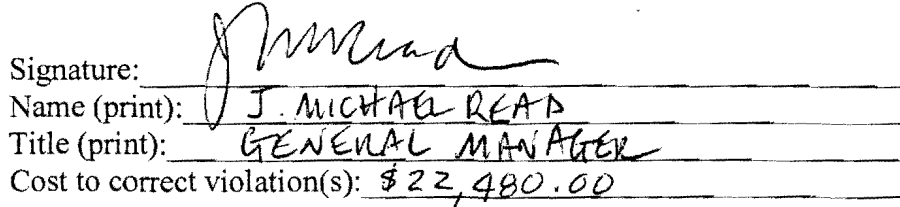 Signature: JMRead
Name (print): J. MICHAEL READ
Title (print): GENERAL MANAGER
Cost to correct violation(s): $22,480.00